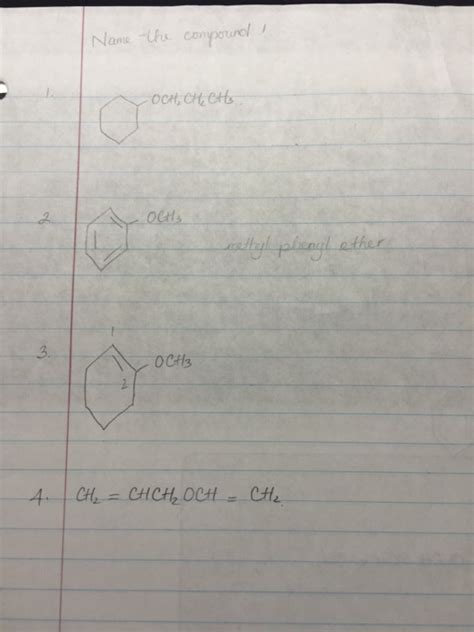 Name the compound
1. OCH2CH2CH3
2. OCH3
methyl phenyl ether
1
3. OCH3
2
4. CH2 = CHCH2OCH = CH2